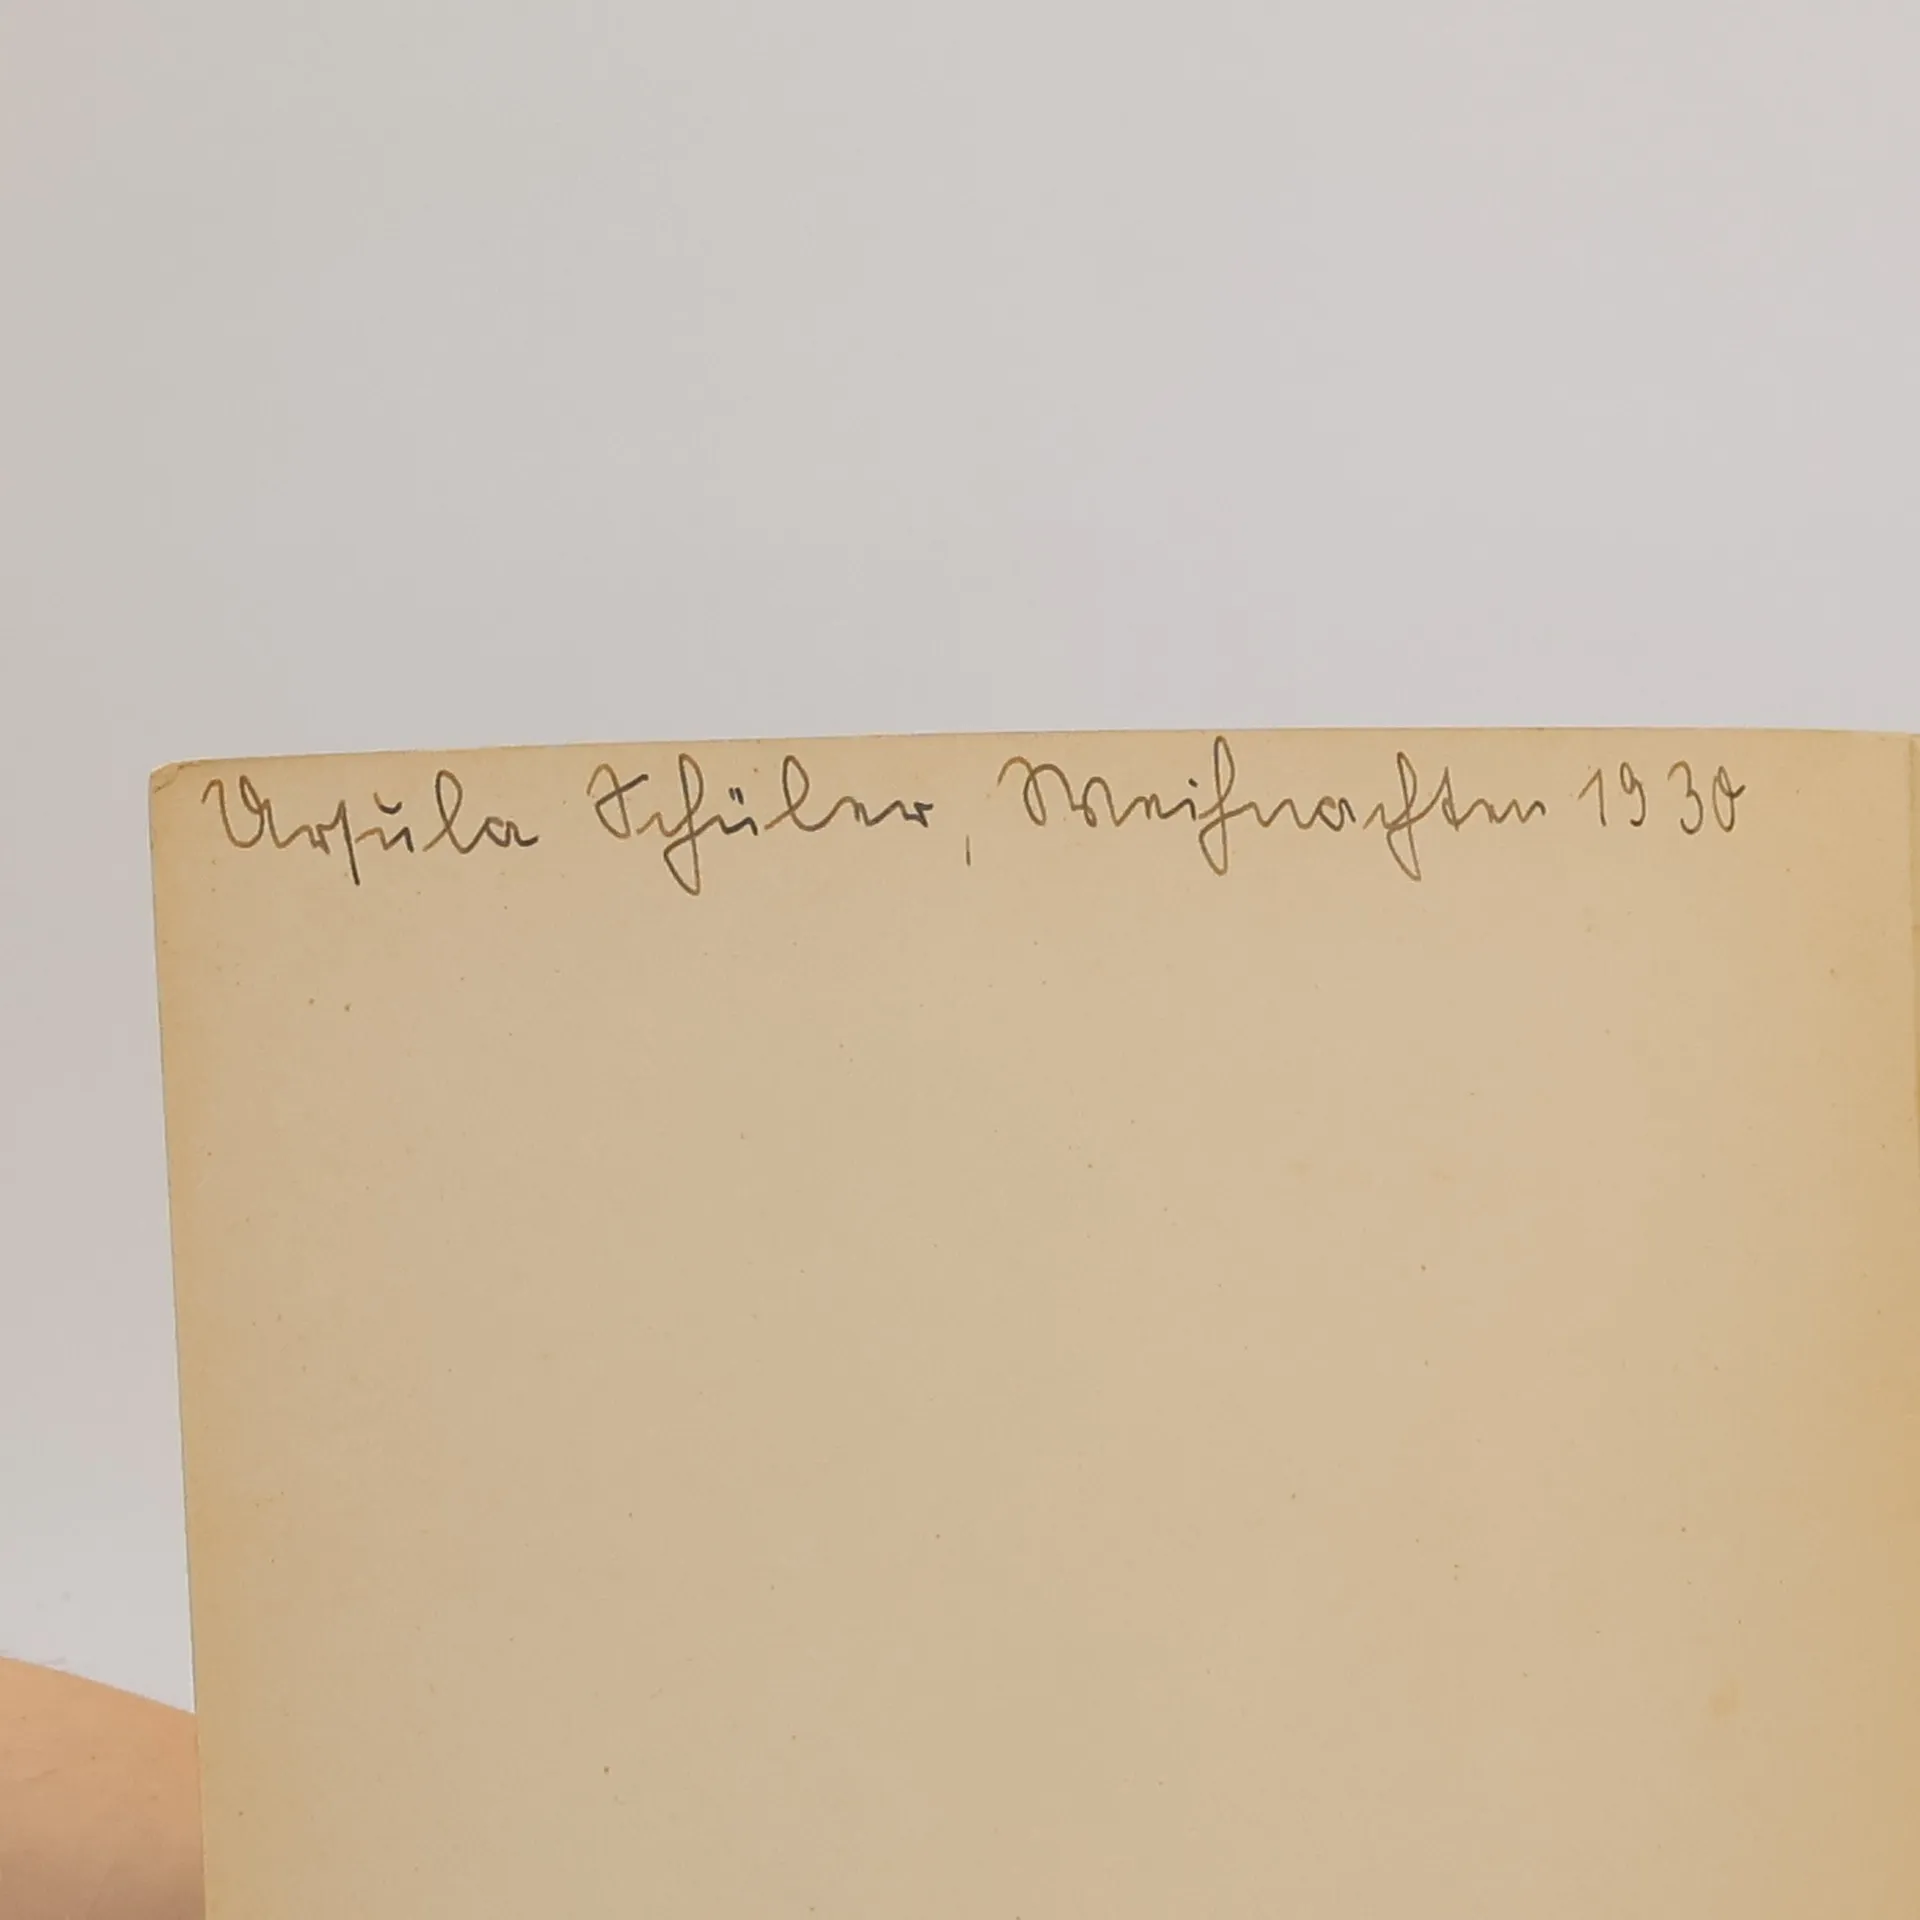 Ursula Schüler, Weihnachten 1930